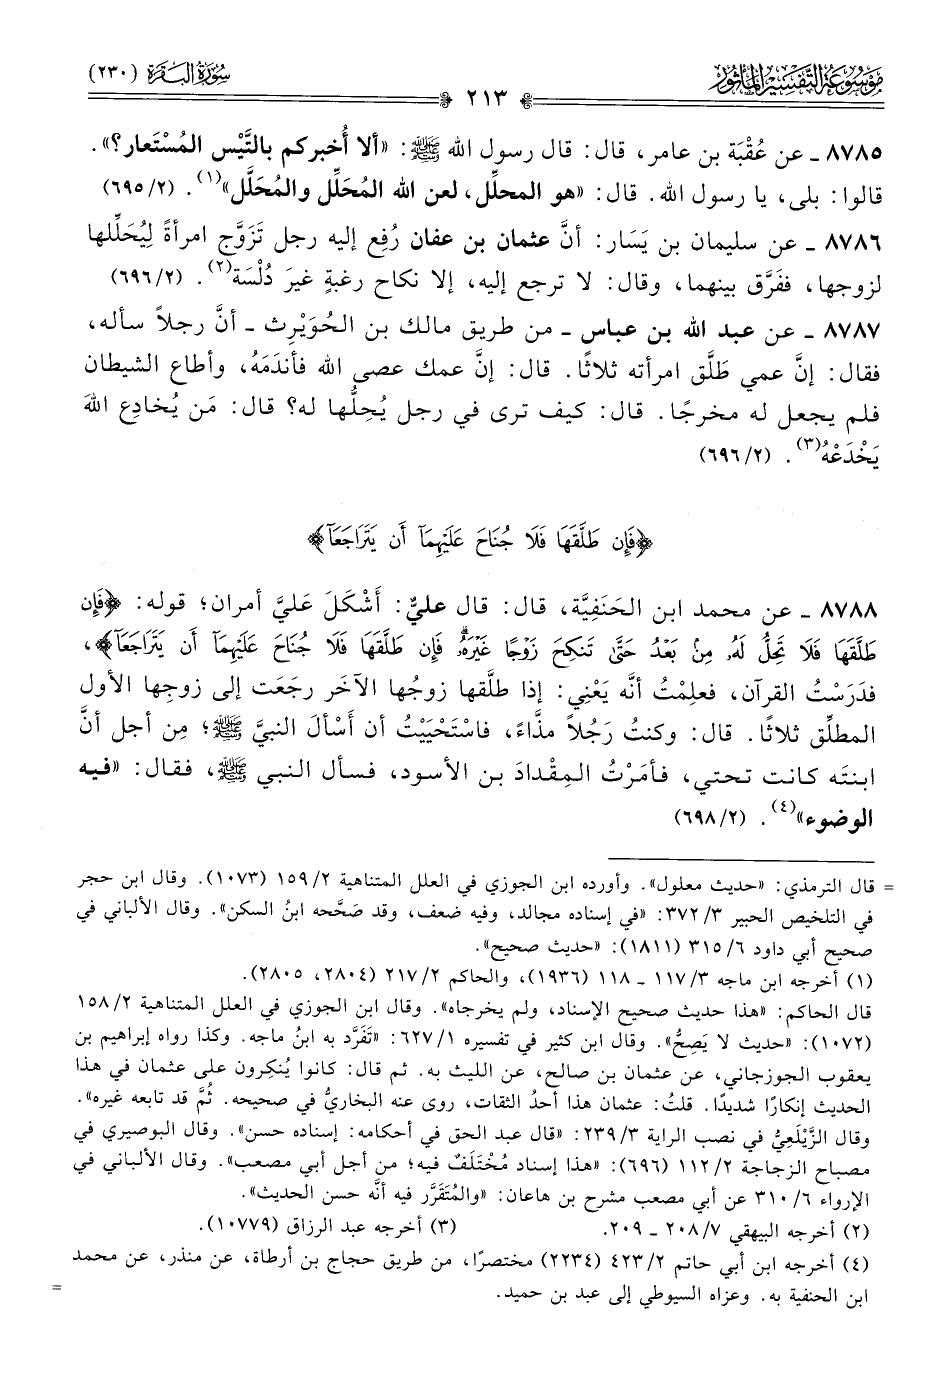 مَوْسُوعَة التَّفْسِير المَأْثُور
سُورَةُ البَقَرَة (٢٣٠)
٢١٣
٨٧٨٥ ـ عن عُقْبَة بن عامر، قال: قال رسول الله ﷺ: «ألا أُخبركم بالتَّيْس المُسْتَعار؟».
قالوا: بلى، يا رسول الله. قال: «هو المحلِّل، لعن الله المُحَلِّل والمُحَلَّل»(١). (٢/ ٦٩٥)
٨٧٨٦ ـ عن سليمان بن يَسَار: أنَّ عثمان بن عفان رُفِع إليه رجل تَزَوَّج امرأةً لِيُحَلِّلها
لزوجها، ففَرَّق بينهما، وقال: لا ترجع إليه، إلا نكاح رغبةٍ غيرَ دُلْسَة(٢). (٢/ ٦٩٦)
٨٧٨٧ ـ عن عبد الله بن عباس ـ من طريق مالك بن الحُوَيْرِث ـ أنَّ رجلاً سأله،
فقال: إنَّ عمي طَلَّق امرأته ثلاثًا. قال: إنَّ عمك عصى الله فأندَمَهُ، وأطاع الشيطان
فلم يجعل له مخرجًا. قال: كيف ترى في رجل يُحِلُّها له؟ قال: مَن يُخادِع اللهَ
يَخْدَعْهُ(٣). (٢/ ٦٩٦)
﴿فَإِن طَلَّقَهَا فَلَا جُنَاحَ عَلَيْهِمَآ أَن يَتَرَاجَعَآ﴾
٨٧٨٨ ـ عن محمد ابن الحَنَفِيَّة، قال: قال عليٌّ: أَشْكَلَ عَليَّ أمران؛ قوله: ﴿فَإِن
طَلَّقَهَا فَلَا تَحِلُّ لَهُۥ مِنۢ بَعْدُ حَتَّىٰ تَنكِحَ زَوْجًا غَيْرَهُۥۗ فَإِن طَلَّقَهَا فَلَا جُنَاحَ عَلَيْهِمَآ أَن يَتَرَاجَعَآ﴾،
فدَرَسْتُ القرآن، فعلِمْتُ أنَّه يَعْنِي: إذا طلَّقها زوجُها الآخَر رجَعَت إلى زوجِها الأول
المطلِّق ثلاثًا. قال: وكنتُ رَجُلاً مذَّاءً، فاسْتَحْيَيْتُ أن أَسْأَلَ النبيَّ ﷺ؛ مِن أجل أنَّ
ابنتَه كانت تحتي، فأمَرْتُ المِقْدادَ بن الأسود، فسأل النبي ﷺ، فقال: «فيه
الوضوء»(٤). (٢/ ٦٩٨)
= قال الترمذي: «حديث معلول». وأورده ابن الجوزي في العلل المتناهية ٢/ ١٥٩ (١٠٧٣). وقال ابن حجر
في التلخيص الحبير ٣/ ٣٧٢: «في إسناده مجالد، وفيه ضعف، وقد صَحَّحه ابنُ السكن». وقال الألباني في
صحيح أبي داود ٦/ ٣١٥ (١٨١١): «حديث صحيح».
(١) أخرجه ابن ماجه ٣/ ١١٧ ـ ١١٨ (١٩٣٦)، والحاكم ٢/ ٢١٧ (٢٨٠٤، ٢٨٠٥).
قال الحاكم: «هذا حديث صحيح الإسناد، ولم يخرجاه». وقال ابن الجوزي في العلل المتناهية ٢/ ١٥٨
(١٠٧٢): «حديث لا يَصِحُّ». وقال ابن كثير في تفسيره ١/ ٦٢٧: «تَفَرَّد به ابنُ ماجه. وكذا رواه إبراهيم بن
يعقوب الجوزجاني، عن عثمان بن صالح، عن الليث به. ثم قال: كانوا يُنكِرون على عثمان في هذا
الحديث إنكارًا شديدًا. قلتُ: عثمان هذا أحدُ الثقات، روى عنه البخاريُّ في صحيحه. ثُمَّ قد تابعه غيره».
وقال الزَّيْلَعِيُّ في نصب الراية ٣/ ٢٣٩: «قال عبد الحق في أحكامه: إسناده حسن». وقال البوصيري في
مصباح الزجاجة ٢/ ١١٢ (٦٩٦): «هذا إسناد مُخْتَلَفٌ فيه؛ من أجل أبي مصعب». وقال الألباني في
الإرواء ٦/ ٣١٠ عن أبي مصعب مشرح بن هاعان: «والمُتَقَرَّر فيه أنَّه حسن الحديث».
(٢) أخرجه البيهقي ٧/ ٢٠٨ ـ ٢٠٩. (٣) أخرجه عبد الرزاق (١٠٧٧٩).
(٤) أخرجه ابن أبي حاتم ٢/ ٤٢٣ (٢٢٣٤) مختصرًا، من طريق حجاج بن أرطاة، عن منذر، عن محمد
ابن الحنفية به. وعزاه السيوطي إلى عبد بن حميد. =